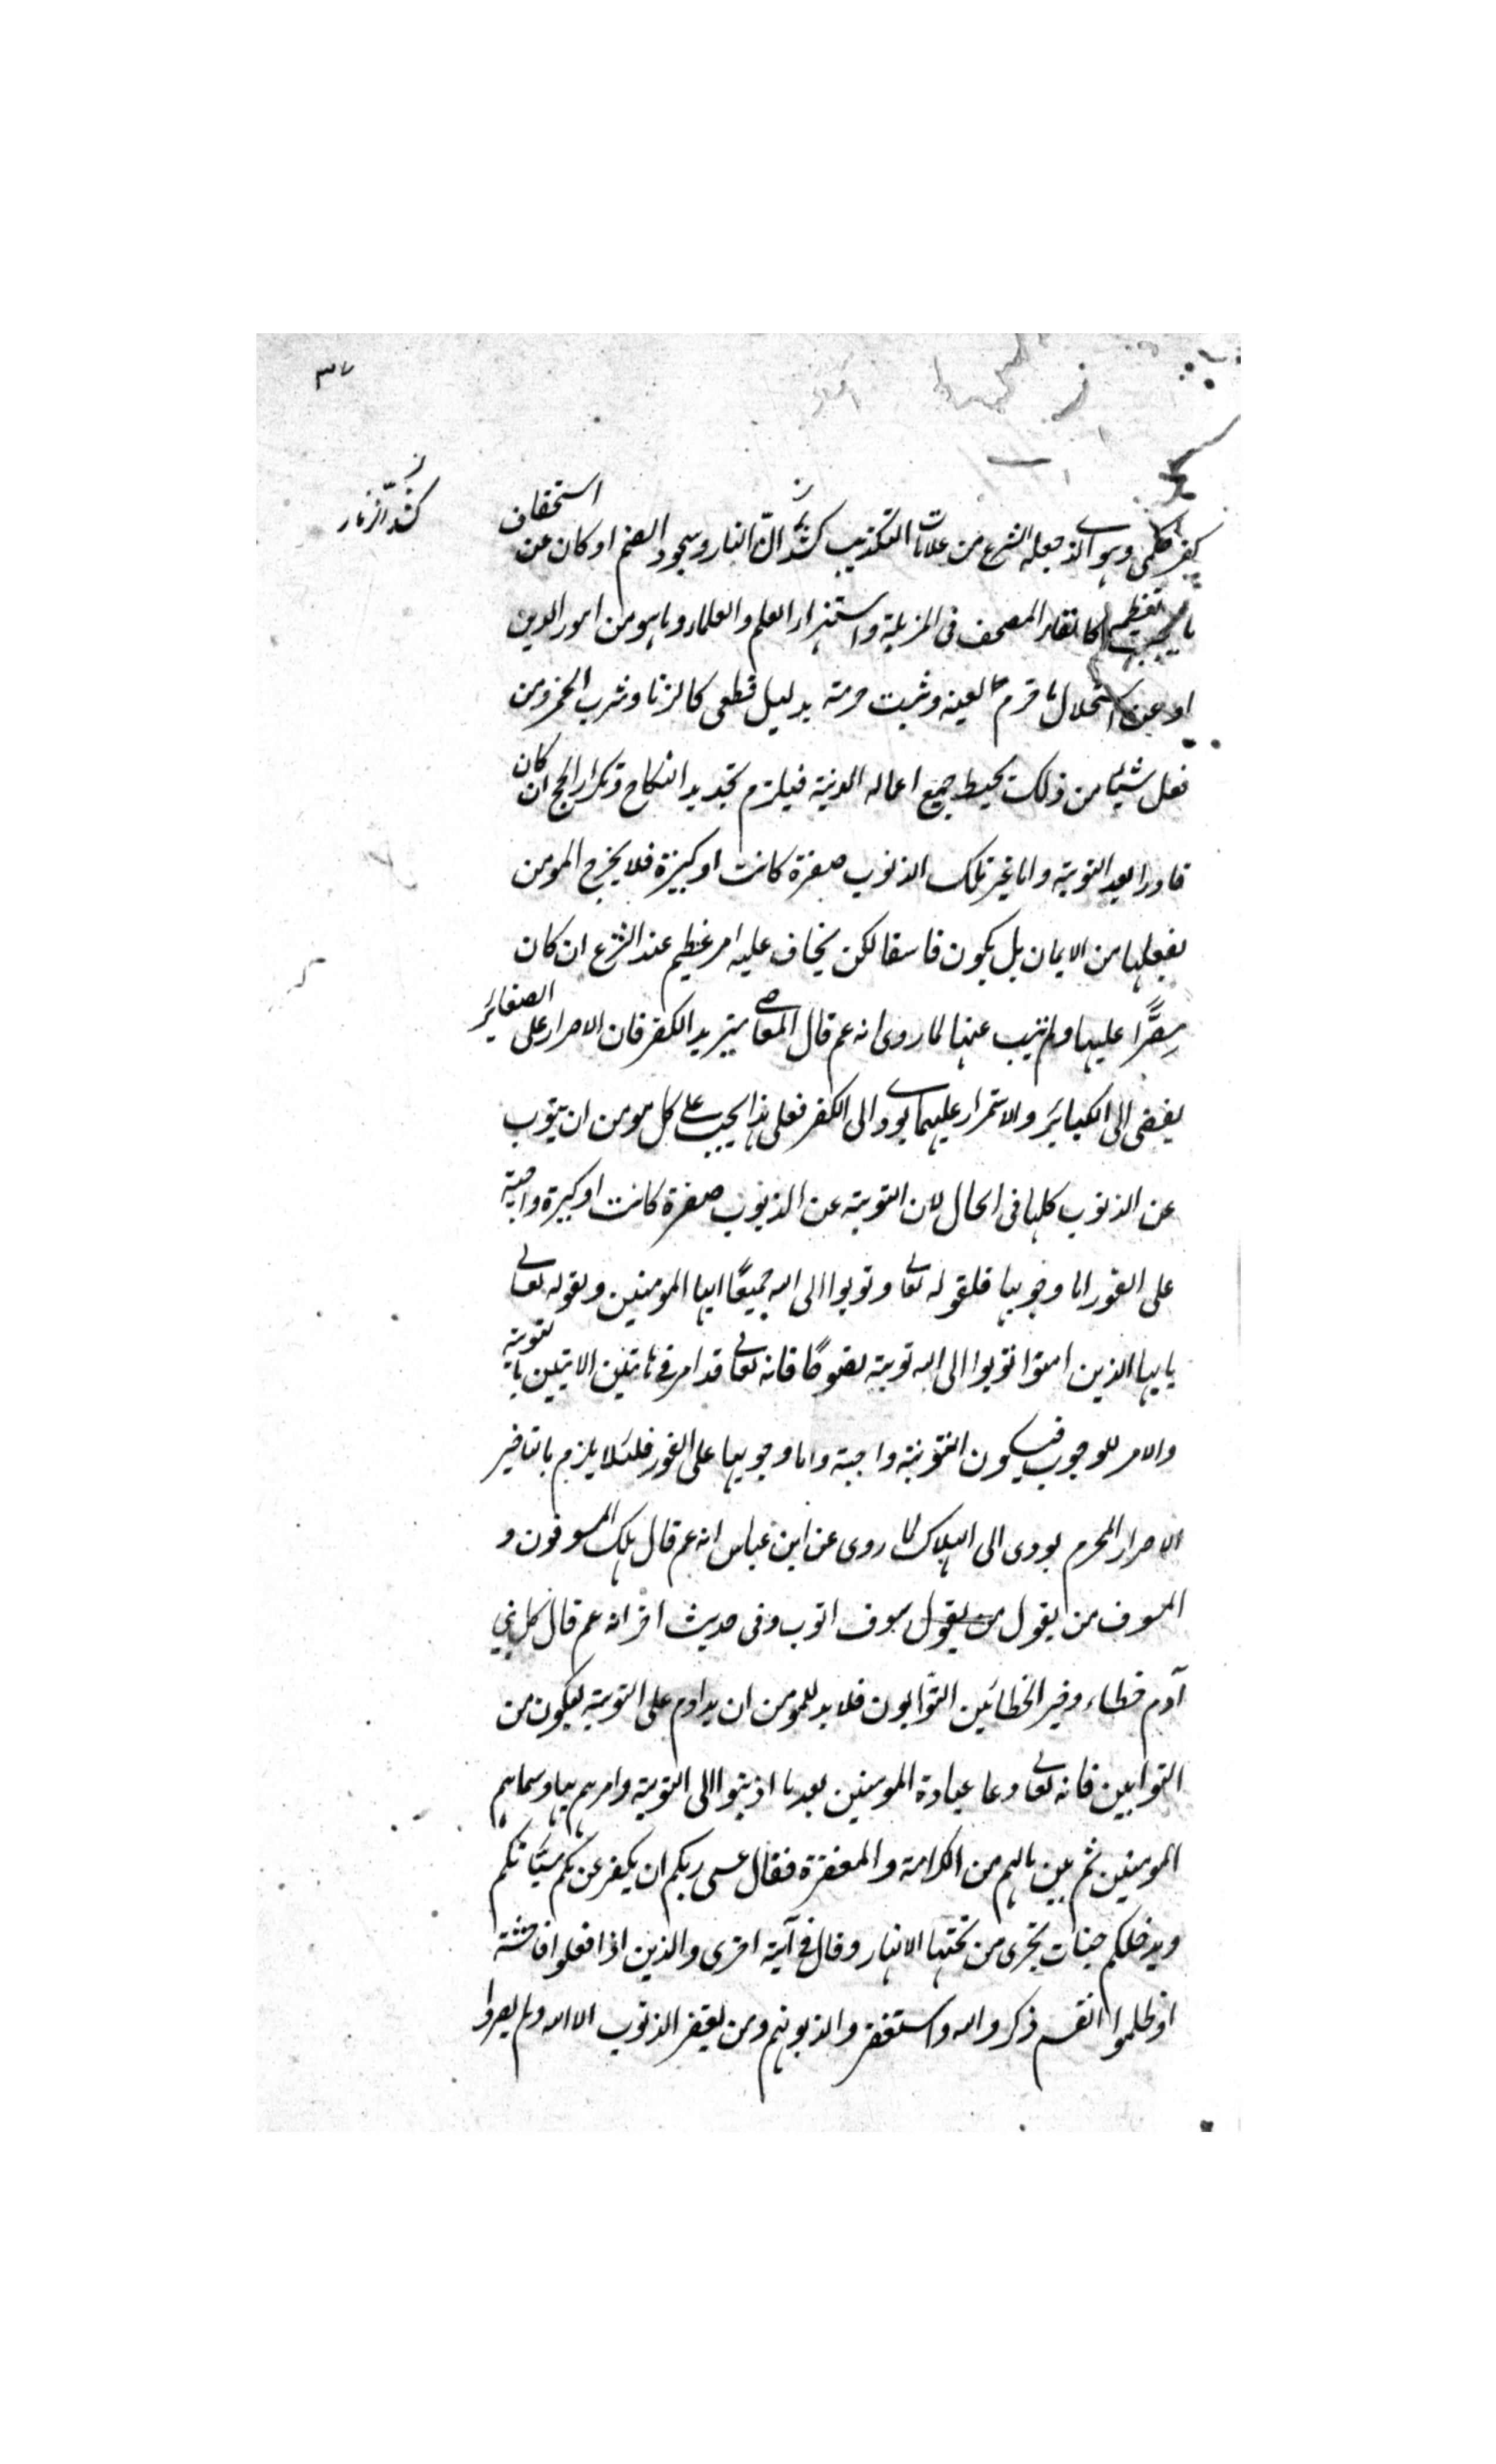 ٣٧
كشد الزنار
كفر حكمى وهو الذى جعله الشرع من علامات التكذيب كشد النار وسجود الصنم او كان عن استخفاف
ما يجب تعظيمه كالقاء المصحف فى المزبلة واستهزاء العلم والعلماء وما هو من امور الدين
او عن استحلال ما حرم لعينه وثبت حرمته بدليل قطعى كالزنا وشرب الخمر ومن
فعل شيئا من ذلك يحبط جميع اعماله الدينية فيلزم تجديد النكاح وتكرار الحج ان كان
قادرا بعد التوبة واما غير تلك الذنوب صغيرة كانت او كبيرة فلا يخرج المومن
بفعلها من الايمان بل يكون فاسقا لكن يخاف عليه امر عظيم عند الشرع ان كان
مصرًّا عليها ولم يتب عنها لما روى انه عم قال المعاصى بريد الكفر فان الاصرار على الصغاير
يفضى الى الكبائر والاستمرار عليهما يودى الى الكفر فعلى هذا يجب على كل مومن ان يتوب
عن الذنوب كلها فى الحال لان التوبة عن الذنوب صغيرة كانت او كبيرة واجبة
على الفور اما وجوبها فلقوله تعالى وتوبوا الى الله جميعًا ايها المومنين وبقوله تعالى
يايها الذين امنوا توبوا الى الله توبة نصوحًا فانه تعالى قد امر فى هاتين الايتين بالتوبة
والامر للوجوب فيكون التوبة واجبة واما وجوبها على الفور فلئلا يلزم بالتاخير
الاصرار المحرم يودى الى الهلاك لما روى عن ابن عباس انه عم قال هلك المسوفون و
المسوف من يقول من يقول سوف اتوب وفى حديث اخر انه عم قال كل بنى
آدم خطاء وخير الخطائين التوّابون فلا بد للمومن ان يداوم على التوبة ليكون من
التوابين فانه تعالى دعا عبادة المومنين بعد ما اذنبوا الى التوبة وامرهم بها وسماهم
المومنين ثم بين مالهم من الكرامة والمغفرة فقال عسى ربكم ان يكفر عنكم سيّاتكم
ويدخلكم جنات تجرى من تحتها الانهار وقال فى آية اخرى والذين اذا فعلوا فاحشة
او ظلموا انفسهم ذكروا الله واستغفروا لذنوبهم ومن يغفر الذنوب الا الله ولم يصروا